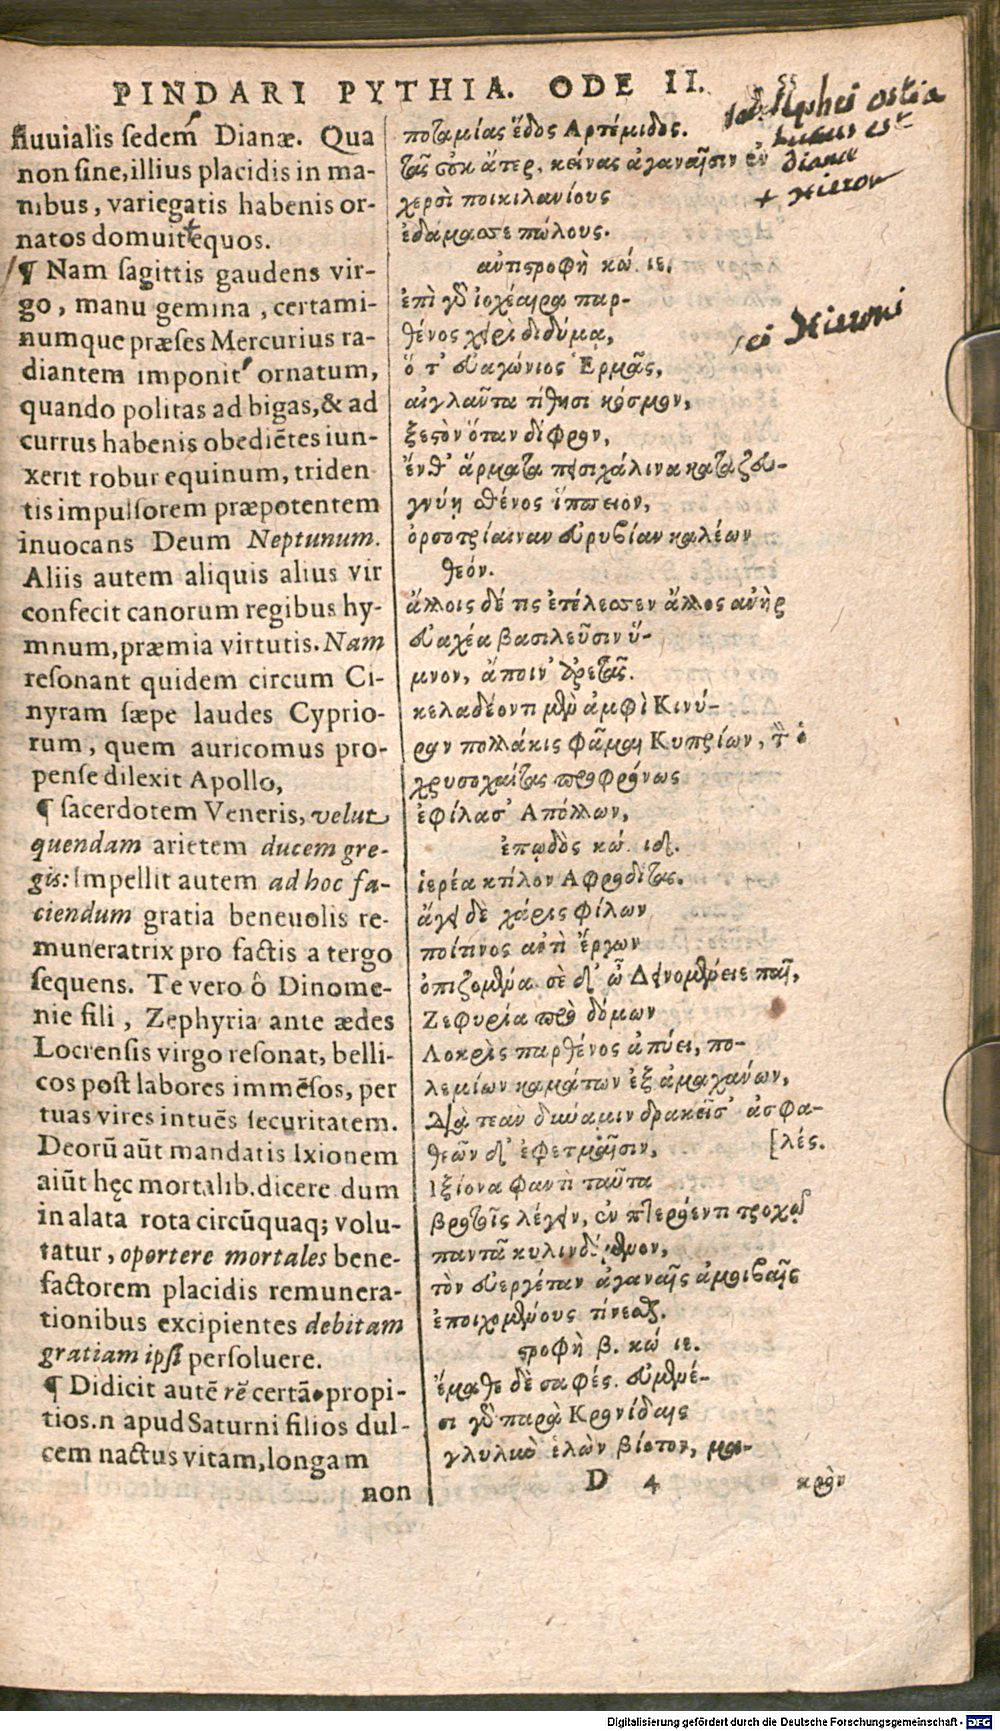 PINDARI PYTHIA. ODE II.
fluuialis sedem Dianæ. Qua
non sine, illius placidis in ma-
nibus, variegatis habenis or-
natos domuit equos.
¶ Nam sagittis gaudens vir-
go, manu gemina, certami-
numque præses Mercurius ra-
diantem imponit ornatum,
quando politas ad bigas, & ad
currus habenis obediẽtes iun-
xerit robur equinum, triden
tis impulsorem præpotentem
inuocans Deum Neptunum.
Aliis autem aliquis alius vir
confecit canorum regibus hy-
mnum, præmia virtutis. Nam
resonant quidem circum Ci-
nyram sæpe laudes Cyprio-
rum, quem auricomus pro-
pense dilexit Apollo,
¶ sacerdotem Veneris, velut
quendam arietem ducem gre-
gis: Impellit autem ad hoc fa-
ciendum gratia beneuolis re-
muneratrix pro factis a tergo
sequens. Te vero ô Dinome-
nie fili, Zephyria ante ædes
Locrensis virgo resonat, belli-
cos post labores immẽsos, per
tuas vires intuẽs securitatem.
Deorũ aũt mandatis Ixionem
aiũt hęc mortalib. dicere dum
in alata rota circũquaq; volu-
tatur, oportere mortales bene-
factorem placidis remunera-
tionibus excipientes debitam
gratiam ipsi persoluere.
¶ Didicit autẽ rẽ certã propi-
tios.n apud Saturni filios dul-
cem nactus vitam, longam
non
ποταμίας ἕδος Ἀρτέμιδος.
τᾶς οὐκ ἄτερ, κείνας ἀγαναῖσιν ἐν
χερσὶ ποικιλανίους
ἐδάμασσε πώλους.
αὐτιστροφὴ κώ. ιε.
ἐπὶ γὸ ἰοχέαιρα παρ-
θένος χειρὶ διδύμα,
ὅ τ' ἐναγώνιος Ἑρμᾶς,
αἰγλαῦτα τίθησι κόσμον,
ξεστὸν ὅταν δίφρον,
ἔνθ' ἅρματα πεισιχάλινα καταζευ-
γνύῃ σθένος ἵππειον,
ὀρσοτρίαιναν εὐρυβίαν καλέων
θεόν.
ἄλλοις δέ τις ἐτέλεσσεν ἄλλος αὐὴρ
εὐαχέα βασιλεῦσιν ὕ-
μνον, ἄποιν' ἀρετᾶς.
κελαδέοντι μὲν ἀμφὶ Κινύ-
ραν πολλάκις φᾶμαι Κυπρίων, τὸν ὁ
χρυσοχαίτας προφρόνως
ἐφίλασ' Ἀπόλλων,
ἐπῳδὸς κώ. ιδ.
ἱερέα κτίλον Ἀφροδίτας.
ἄγει δὲ χάρις φίλων
ποίτινος αὐτὶ ἔργων
ὀπιζομένα. σὲ δ' ὦ Δεινομένειε παῖ,
Ζεφυρία πρὸ δόμων
Λοκρὶς παρθένος ἀπύει, πο-
λεμίων καμάτων ἐξ ἀμαχάνων,
Διὰ τεὰν δύναμιν δρακεῖσ' ἀσφα-
θεῶν δ' ἐφετμαῖσιν, [λές.
Ἰξίονα φαντὶ ταῦτα
βροτοῖς λέγειν, ἐν πτερόεντι τροχῷ
παντᾶ κυλινδόμενον,
τὸν εὐεργέταν ἀγαναῖς ἀμοιβαῖς
ἐποιχομένους τίνεσθ.
στροφὴ β. κώ ιε.
ἔμαθε δὲ σαφές. εὐμενέ-
σι γὸ παρὰ Κρονίδαις
γλυκὺ ἑλὼν βίοτον, μα-
D 4 κρὸν
Alphei ostia
lucus est
Dianæ
+ Hieron
sci Hieroni
Digitalisierung gefördert durch die Deutsche Forschungsgemeinschaft - DFG